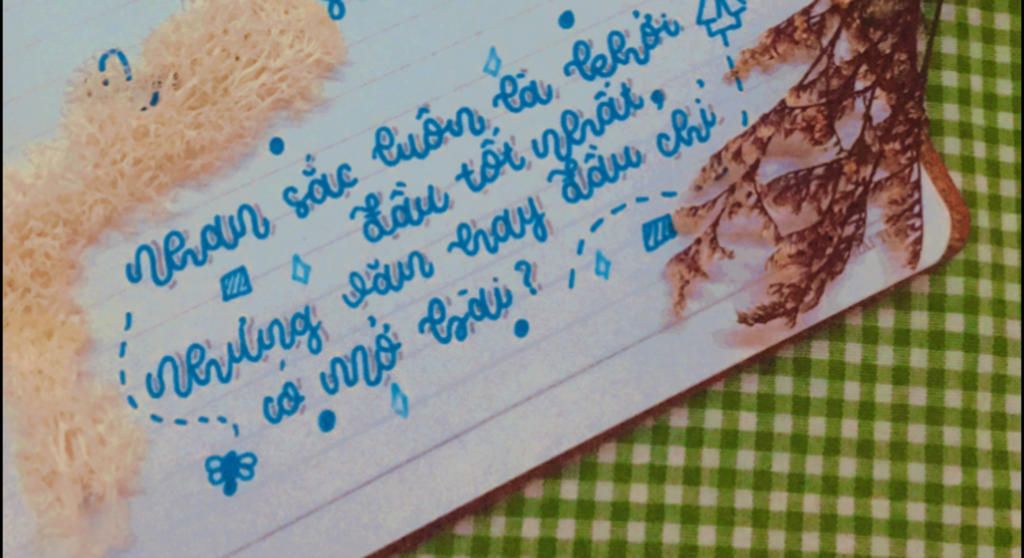 Nhan sắc luôn là khởi
đầu tốt nhất,
Nhưng văn hay đâu chỉ
có mở bài?